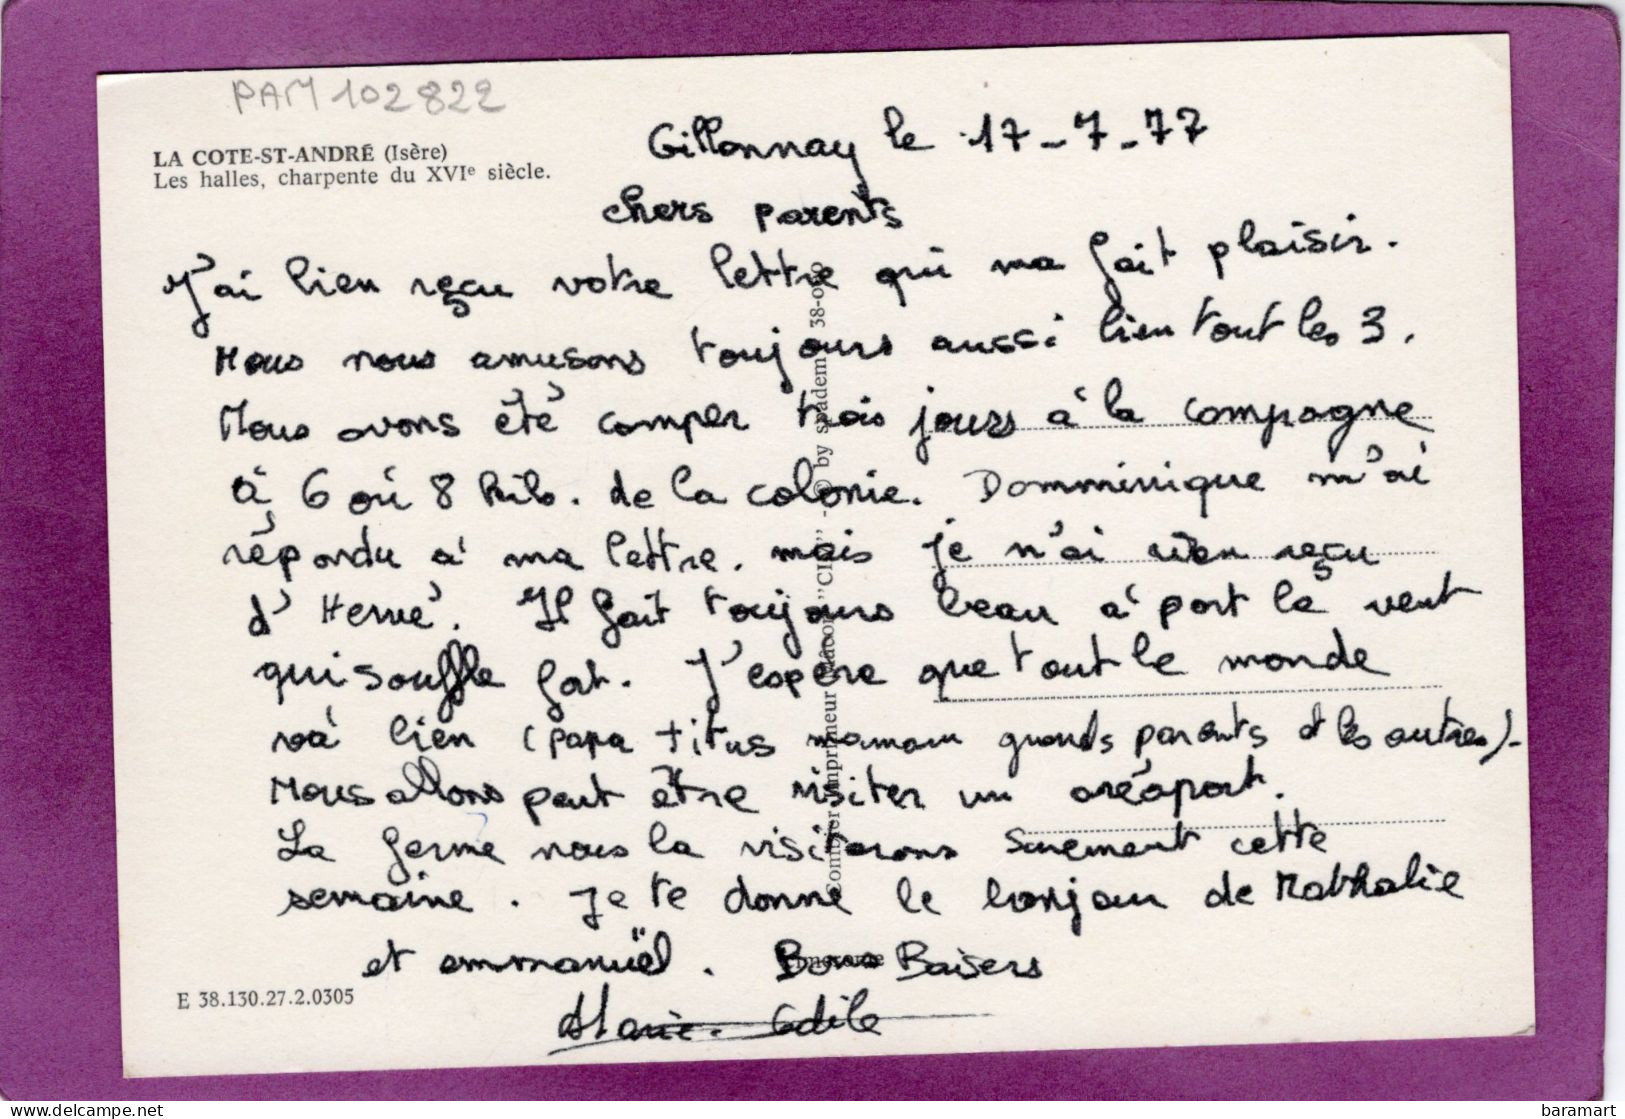 PAM 102822
LA COTE-ST-ANDRÉ (Isère)
Les halles, charpente du XVIe siècle.
Gillonnay le 17-7-77
chers parents
J'ai bien reçu votre lettre qui ma fait plaisir.
Nous nous amusons toujours aussi bien tout les 3.
Nous avons été camper trois jours à la campagne
à 6 où 8 kilo. de la colonie. Domminique m'ai
répondu a' ma lettre. mais je n'ai rien reçu
d'Hervé. Il fait toujours beau a' part le vent
qui souffle fort. J'espère que tout le monde
và bien (papa titus maman grands parents et les autres).
Nous allons peut être visiter un aréaport.
La ferme nous la visiterons surement cette
semaine. Je te donne le bonjour de Nathalie
et emmanuël. Bons Baisers
Marie. Odile
E 38.130.27.2.0305
Combier imprimeur Macon "CIM" - © by spadem 38-0
baramart
www.delcampe.net